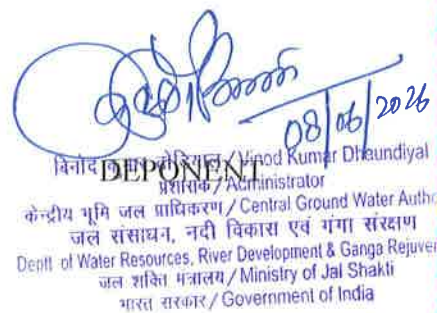 08/06/2026
DEPONENT
बिनोद / Vinod Kumar Dhaundiyal
प्रशासक / Administrator
केन्द्रीय भूमि जल प्राधिकरण / Central Ground Water Autho
जल संसाधन, नदी विकास एवं गंगा संरक्षण
Deptt of Water Resources, River Development & Ganga Rejuver
जल शक्ति मंत्रालय / Ministry of Jal Shakti
भारत सरकार / Government of India